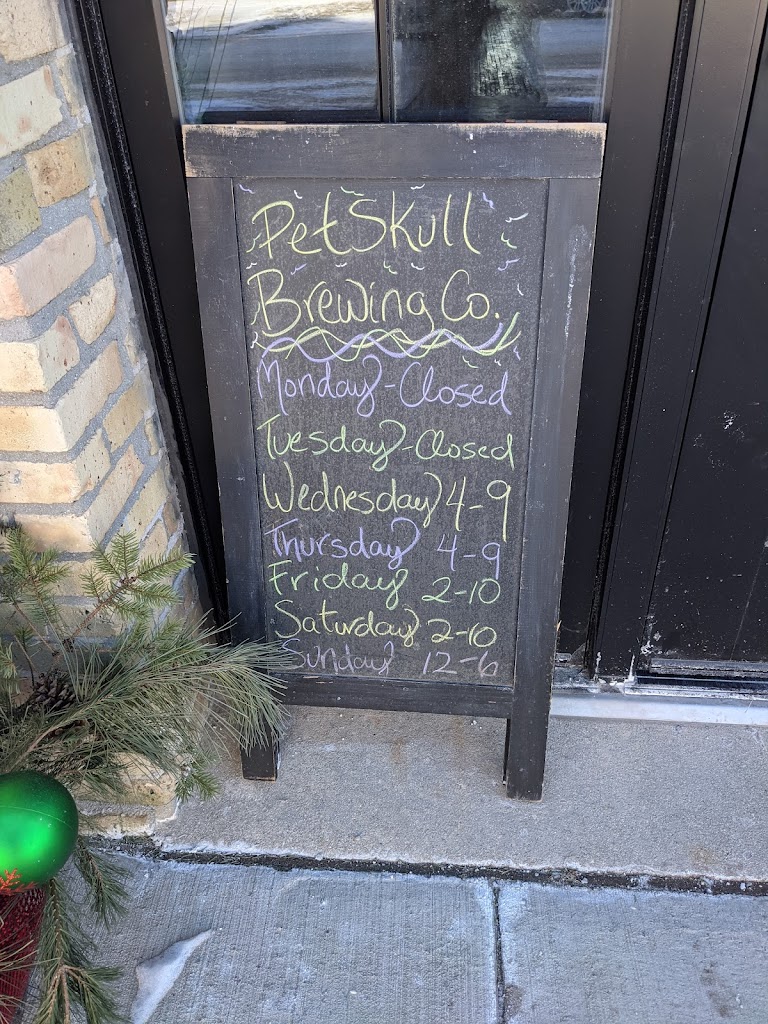 PetSkull
Brewing Co.
Monday-Closed
Tuesday-Closed
Wednesday 4-9
Thursday 4-9
Friday 2-10
Saturday 2-10
Sunday 12-6